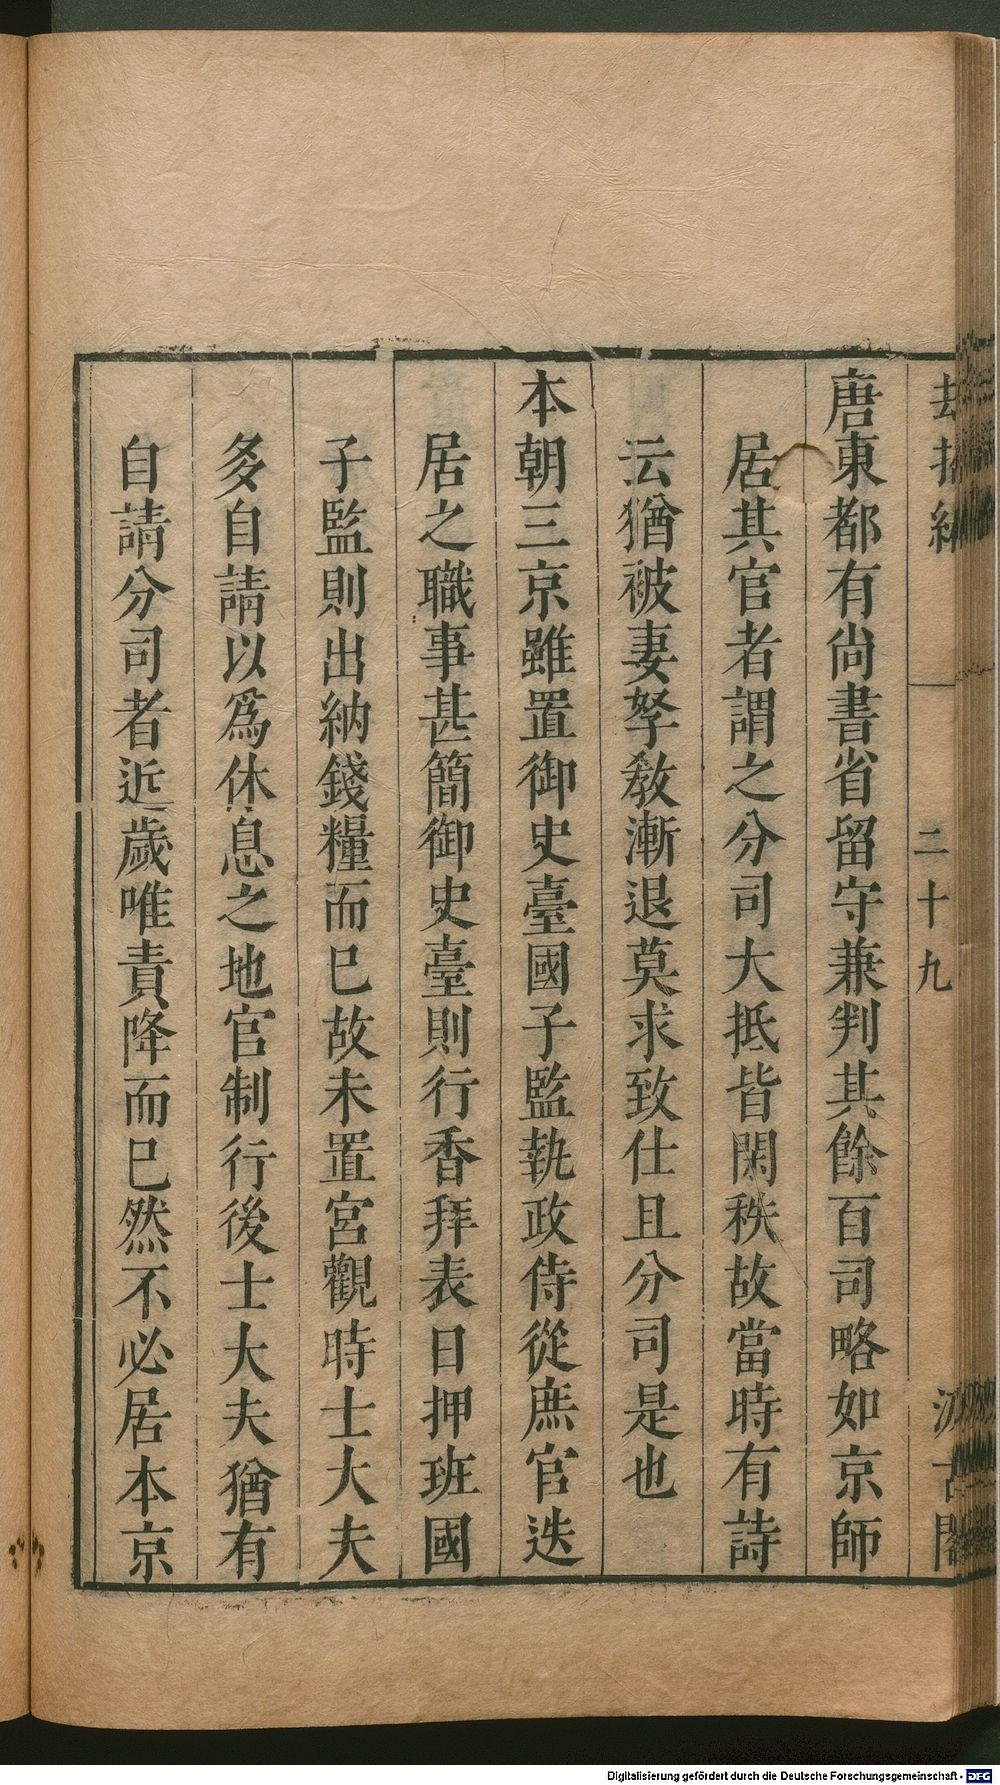 二十九
唐東都有尚書省留守兼判其餘百司略如京師
居其官者謂之分司大抵皆閑秩故當時有詩
云猶被妻孥教漸退莫求致仕且分司是也
本朝三京雖置御史臺國子監執政侍從庶官迭
居之職事甚簡御史臺則行香拜表日押班國
子監則出納錢糧而已故未置宮觀時士大夫
多自請以爲休息之地官制行後士大夫猶有
自請分司者近歲唯責降而已然不必居本京
Digitalisierung gefördert durch die Deutsche Forschungsgemeinschaft - DFG